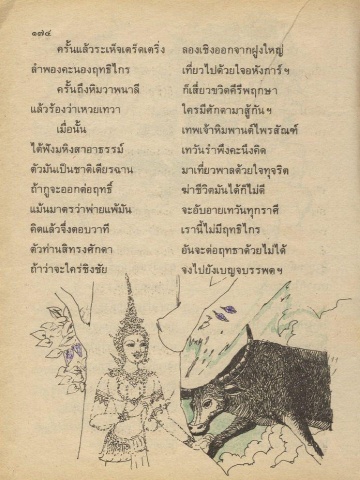 ๑๗๔
ครั้นแล้วระเห็จเตร็ดเตร่ง ลองเชิงออกจากฝูงใหญ่
ลำพองคะนองฤทธิไกร เที่ยวไปด้วยใจอหังการ์ฯ
ครั้นถึงหิมวาพนาลี ก็เสี่ยวขวิดคีรีพฤกษา
แล้วร้องว่าเหวยเทวา ใครมีศักดามาสู้กันฯ
เมื่อนั้น เทพเจ้าหิมพานต์ไพรสัณฑ์
ได้ฟังมหิงสาอาธรรม์ เทวันรำพึงคะนึงคิด
ตัวมันเป็นชาติเดียรฉาน มาเที่ยวพาลด้วยใจทุจริต
ถ้ากูจะออกต่อฤทธิ์ ฆ่าชีวิตมันได้ก็ไม่ดี
แม้นมาตรว่าพ่ายแพ้มัน จะอับอายเทวันทุกราศี
คิดแล้วจึ่งตอบวาที เรานี้ไม่มีฤทธิไกร
ตัวท่านสิทรงศักดา อันจะต่อฤทธาด้วยไม่ได้
ถ้าว่าจะใคร่ชิงชัย จงไปยังเบญจบรรพตฯ